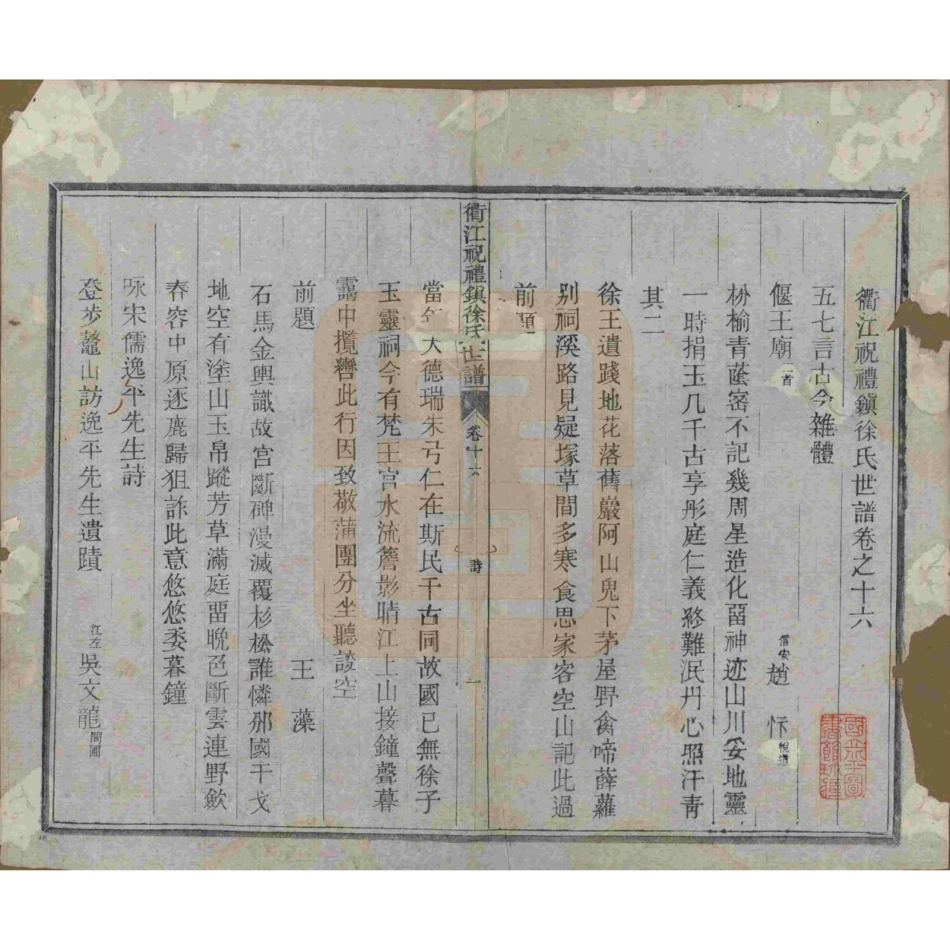 衢江祝禮鎮徐氏世譜卷之十六
五七言古今雜體
偃王廟二首 信安趙忭悅道
枌榆青蔭窑不記幾周星造化畱神迹山川妥地靈
一時捐玉几千古享彤庭仁義終難泯丹心照汗青
其二
徐王遺踐地花落舊巖阿山鬼下茅屋野禽啼薜蘿
別祠溪路見疑塚草間多寒食思家客空山記此過
前題
當年大德瑞朱弓仁在斯民千古同故國已無徐子
玉靈祠今有梵王宮水流簷影晴江上山接鐘聲暮
靄中攬轡此行因致敬蒲團分坐聽談空
前題 王藻
石馬金輿識故宮斷碑漫滅覆杉松誰憐邢國干戈
地空有塗山玉帛蹤芳草滿庭畱晚色斷雲連野歛
春容中原逐鹿歸狙詐此意悠悠委暮鐘
咏宋儒逸平先生詩
登步鼇山訪逸平先生遺蹟 江左吳文龍問圃
衢江祝禮鎮徐氏世譜 卷十六 詩 一